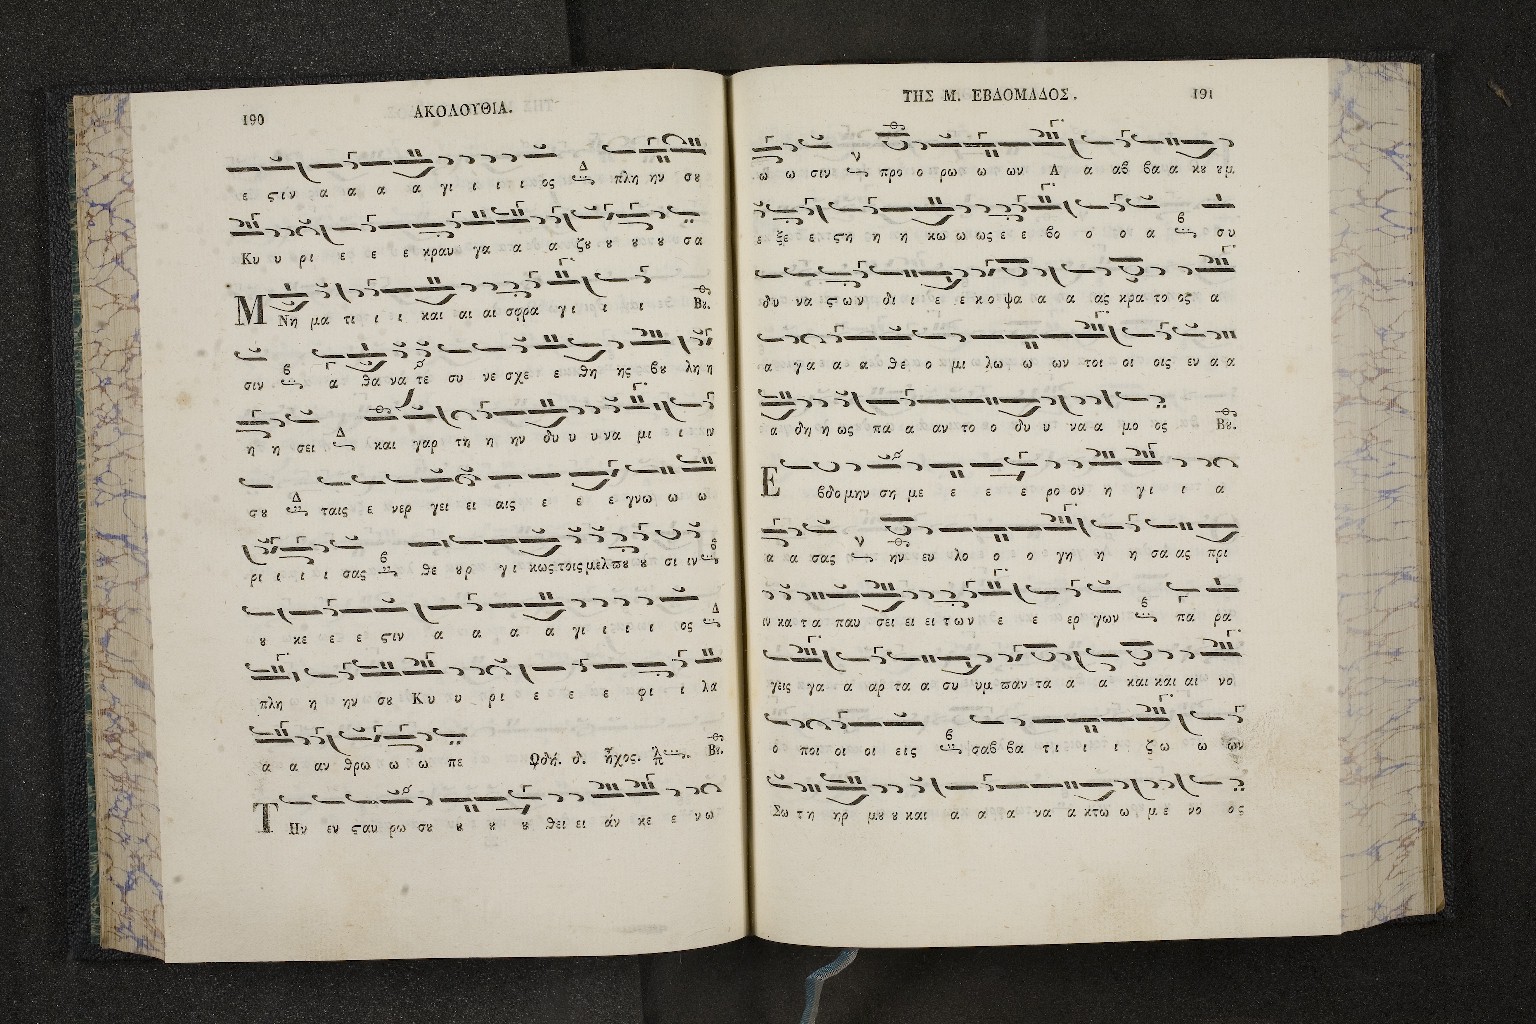 190
ΑΚΟΛΟΥΘΙΑ.
ε ϛιν α α α α γι ι ι ι ος Δ πλη ην σȣ
Κυ υ ρι ε ε ε κραυ γα α α ζȣ ȣ ȣ ȣ σα
ΜΝη μα τι ι ι και αι αι σφρα γι ι ι Βȣ.
σιν β α θα να τε συ νε σχε ε θη ης βȣ λη η
η η σει Δ και γαρ τη η ην δυ υ υ να μι ι ιν
σȣ Δ ταις ε νερ γει ει αις ε ε ε γνω ω ω
ρι ι ι ι σας β θε ȣρ γι κως τοις μελ πȣ ȣ σι ιν β
ȣ κε ε ε ϛιν α α α α γι ι ι ι ος Δ
πλη η ην σȣ Κυ υ ρι ε ε ε φι ι λα
α α αν θρω ω ω πε Ωδή. δ. ἦχος. Βȣ.
ΤΗν εν ϛαυ ρω σȣ ȣ ȣ ȣ θει ει άν κε ε νω
ΤΗΣ Μ. ΕΒΔΟΜΑΔΟΣ.
191
ω ω σιν ν προ ο ρω ω ων Α α αβ βα α κȣ ȣμ
ε ξε ε ϛη η η κω ω ως ε ε βο ο ο α β συ
δυ να ϛων δι ι ε ε κο ψα α α ας κρα το ος α
α γα α α θε ο μι λω ω ων τοι οι οις εν α α
α δη η ως πα α αν το ο δυ υ να α μο ος Βȣ.
Εβδο μην ση με ε ε ε ρο ον η γι ι α
α α σας ν ην ευ λο ο ο γη η η σα ας πρι
ιν κα τα παυ σει ει ει των ε ε ερ γων β πα ρα
γεις γα α αρ τα α συ υμ παν τα α α και και αι νο
ο ποι οι οι εις β σαβ βα τι ι ι ζω ω ων
Σω τη ηρ μȣ ȣ και α α α να α κτω ω με νο ος